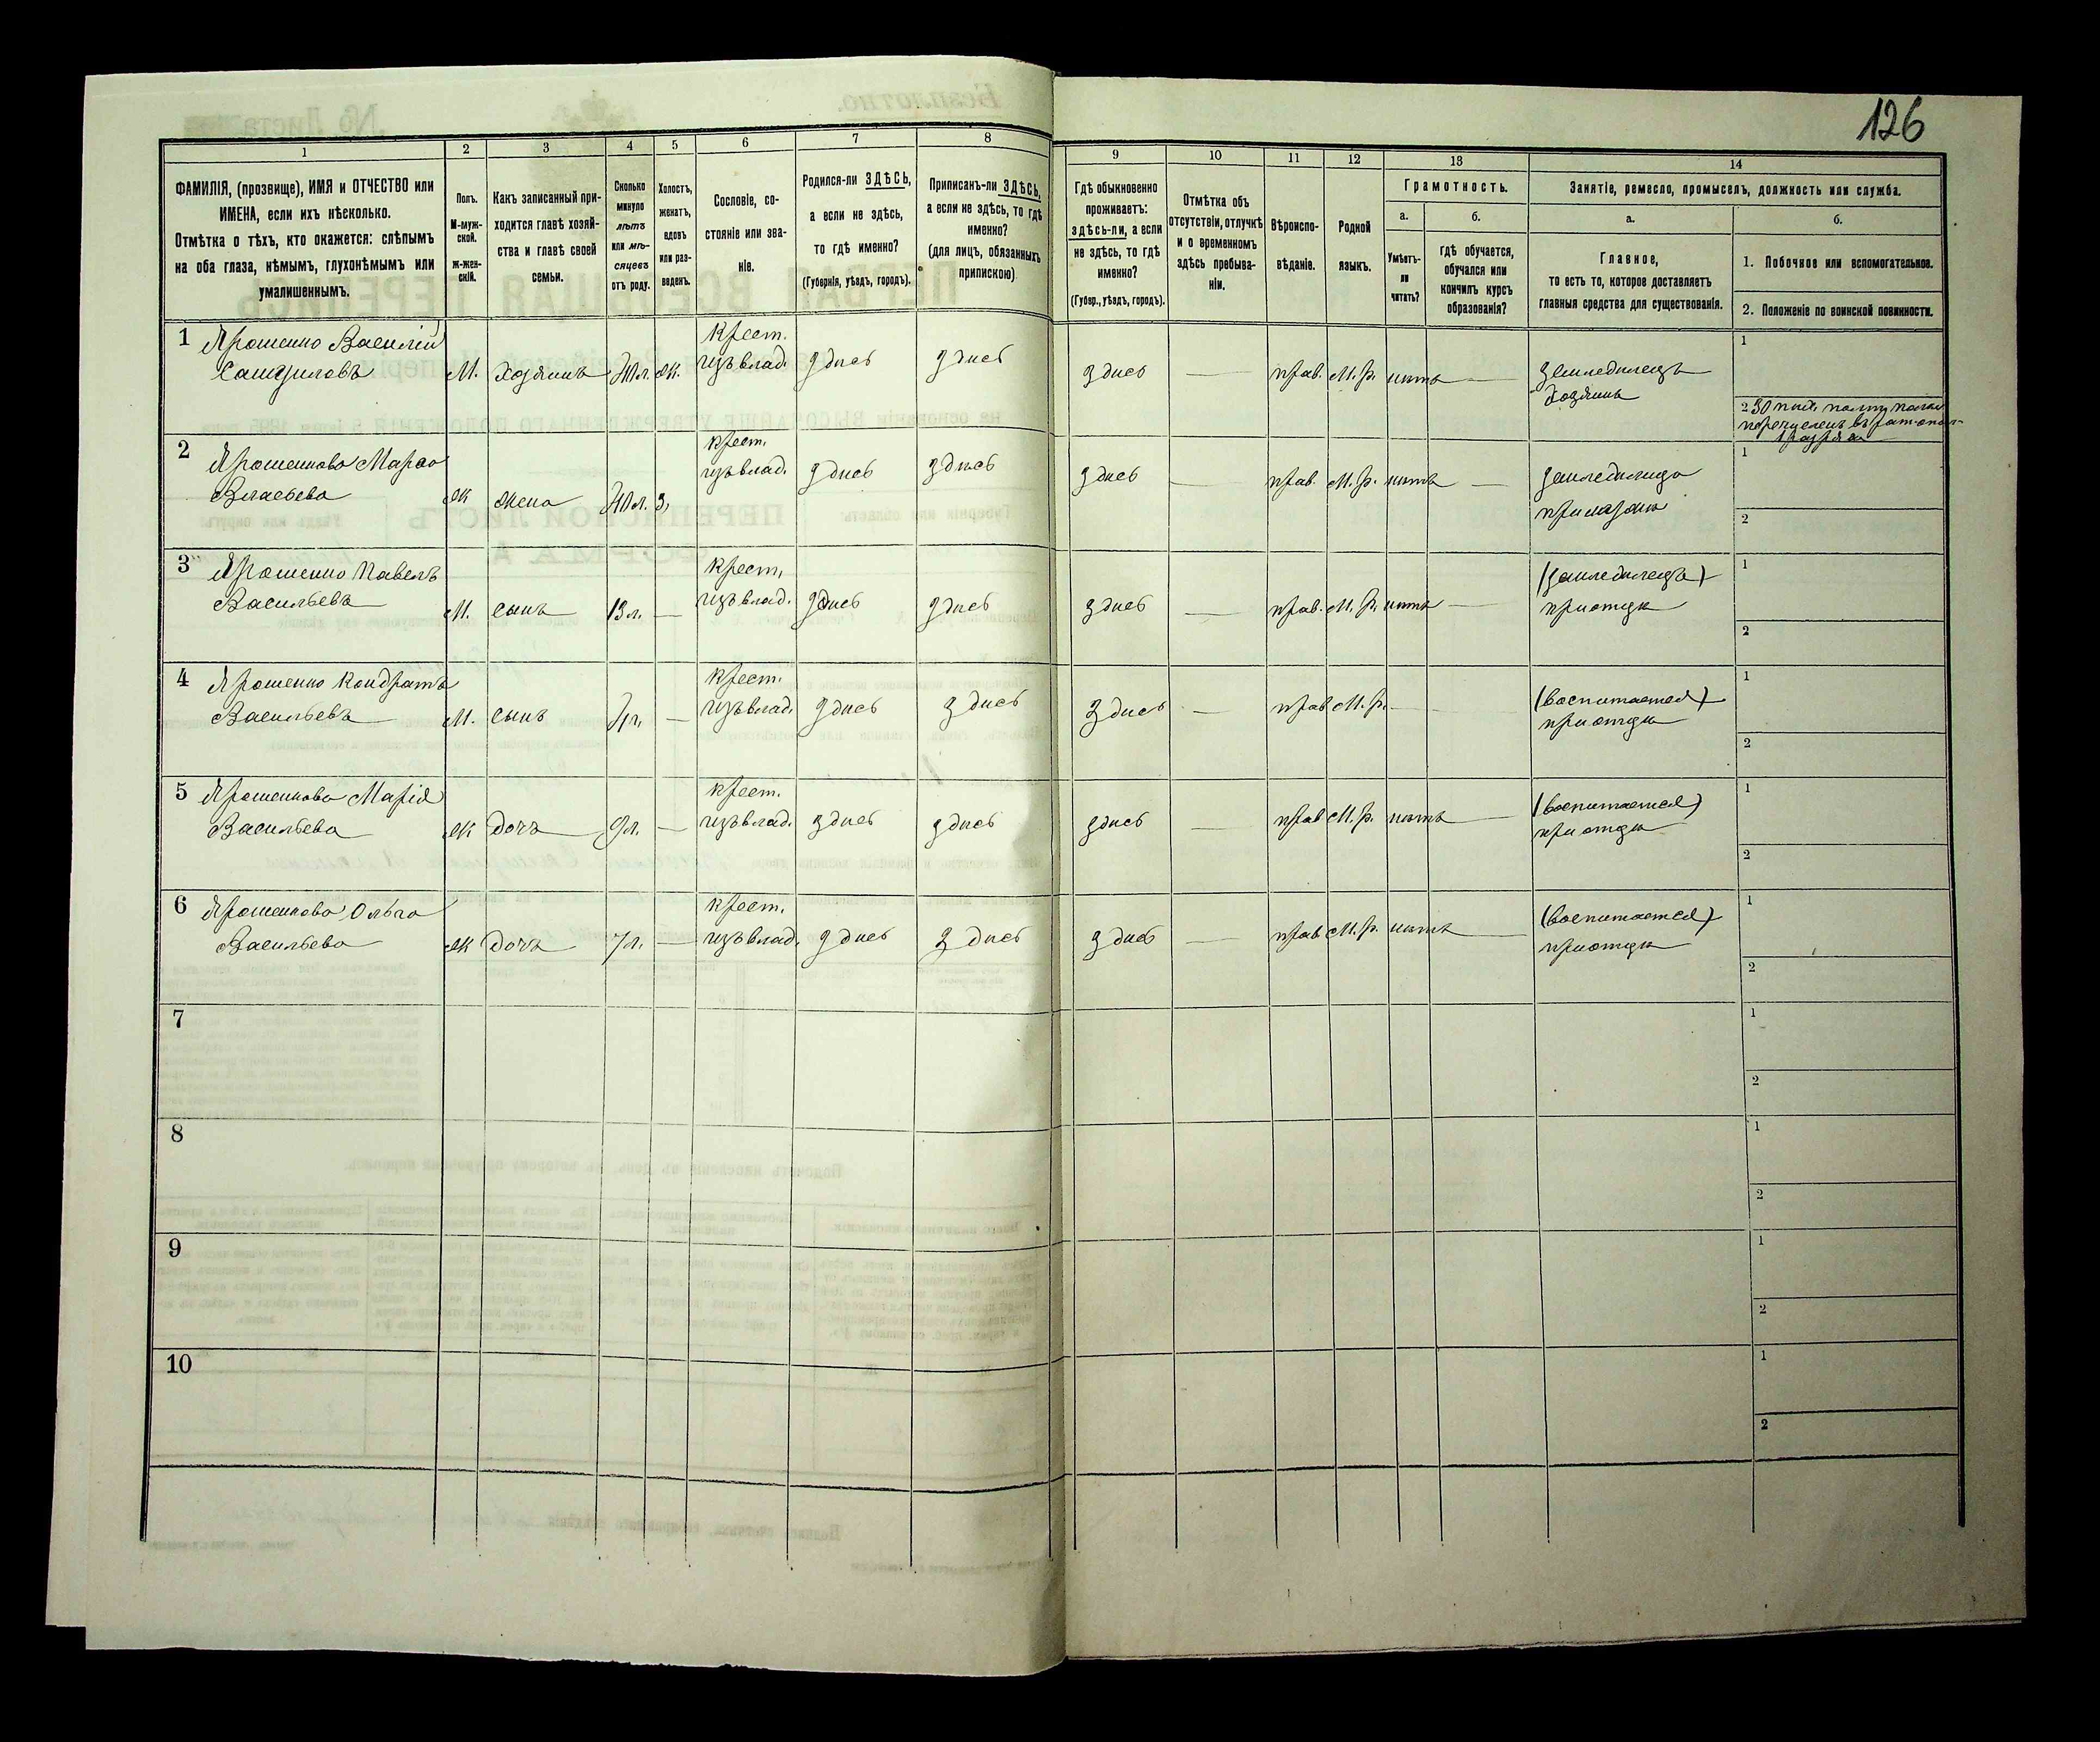 126
1
2
3
4
5
6
7
8
9
10
11
12
13
14
ФАМИЛІЯ, (прозвище), ИМЯ и ОТЧЕСТВО или
ИМЕНА, если ихъ нѣсколько.
Отмѣтка о тѣхъ, кто окажется: слѣпымъ
на оба глаза, нѣмымъ, глухонѣмымъ или
умалишеннымъ.
Полъ.
М-муж-
ской.
ж-жен-
скій.
Какъ записанный при-
ходится главѣ хозяй-
ства и главѣ своей
семьи.
Сколько
минуло
лѣтъ
или мѣ-
сяцевъ
отъ роду.
Холостъ,
женатъ,
вдовъ
или раз-
веденъ.
Сословіе, со-
стояніе или зва-
ніе.
Родился-ли ЗДѢСЬ,
а если не здѣсь,
то гдѣ именно?
(Губернія, уѣздъ, городъ).
Приписанъ-ли ЗДѢСЬ,
а если не здѣсь, то гдѣ
именно?
(для лицъ, обязанныхъ
припискою)
Гдѣ обыкновенно
проживаетъ:
здѣсь-ли, а если
не здѣсь, то гдѣ
именно?
(Губер., уѣздъ, городъ).
Отмѣтка объ
отсутствіи, отлучкѣ
и о временномъ
здѣсь пребыва-
ніи.
Вѣроиспо-
вѣданіе.
Родной
языкъ.
Грамотность.
а.
Умѣетъ-
ли
читать?
б.
гдѣ обучается,
обучался или
кончилъ курсъ
образованія?
Занятіе, ремесло, промыселъ, должность или служба.
а.
Главное,
то есть то, которое доставляетъ
главныя средства для существованія.
б.
1. Побочное или вспомогательное.
2. Положеніе по воинской повинности.
1 Ярошенко Василій
М. хозяинъ ж. Крест.
изъ влад. здѣсь здѣсь здѣсь — прав. М. р. нѣтъ — земледѣлецъ
хозяинъ
1
2
2 Ярошенкова
ж жена з. Крест.
изъ влад. здѣсь здѣсь здѣсь — прав. М. р. нѣтъ —
1
2
3 Ярошенко Павелъ
Васильевъ М. сынъ 13 л. — Крест.
изъ влад. здѣсь здѣсь здѣсь — прав. М. р. нѣтъ — (земледѣлецъ)
при отцѣ
1
2
4 Ярошенко Кондратъ
Васильевъ М. сынъ — Крест.
изъ влад. здѣсь здѣсь здѣсь — прав М. р. — (воспитается)
при отцѣ
1
2
5 Ярошенкова Марія
Васильева ж дочь 9 л. — Крест.
изъ влад. здѣсь здѣсь здѣсь — прав М. р. нѣтъ — (воспитается)
при отцѣ
1
2
6 Ярошенкова Ольга
Васильева ж дочь 7 л. — Крест.
изъ влад. здѣсь здѣсь здѣсь — прав М. р. нѣтъ — (воспитается)
при отцѣ
1
2
7
1
2
8
1
2
9
1
2
10
1
2